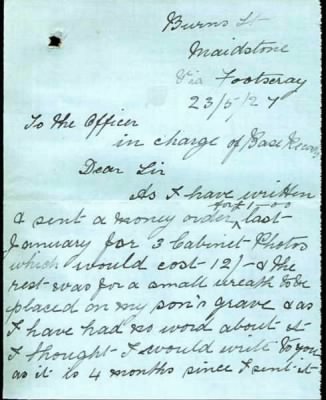 Burns St
Maidstone
Via Footscray
23/5/27
To The Officer
in charge of Base Records
Dear Sir
As I have written
& sent a money order for £1-0-0 last
January for 3 Cabinet Photos
which would cost 12/- & the
rest was for a small wreath to be
placed on my son's grave & as
I have had no word about it
I thought I would write to you
as it is 4 months since I sent it